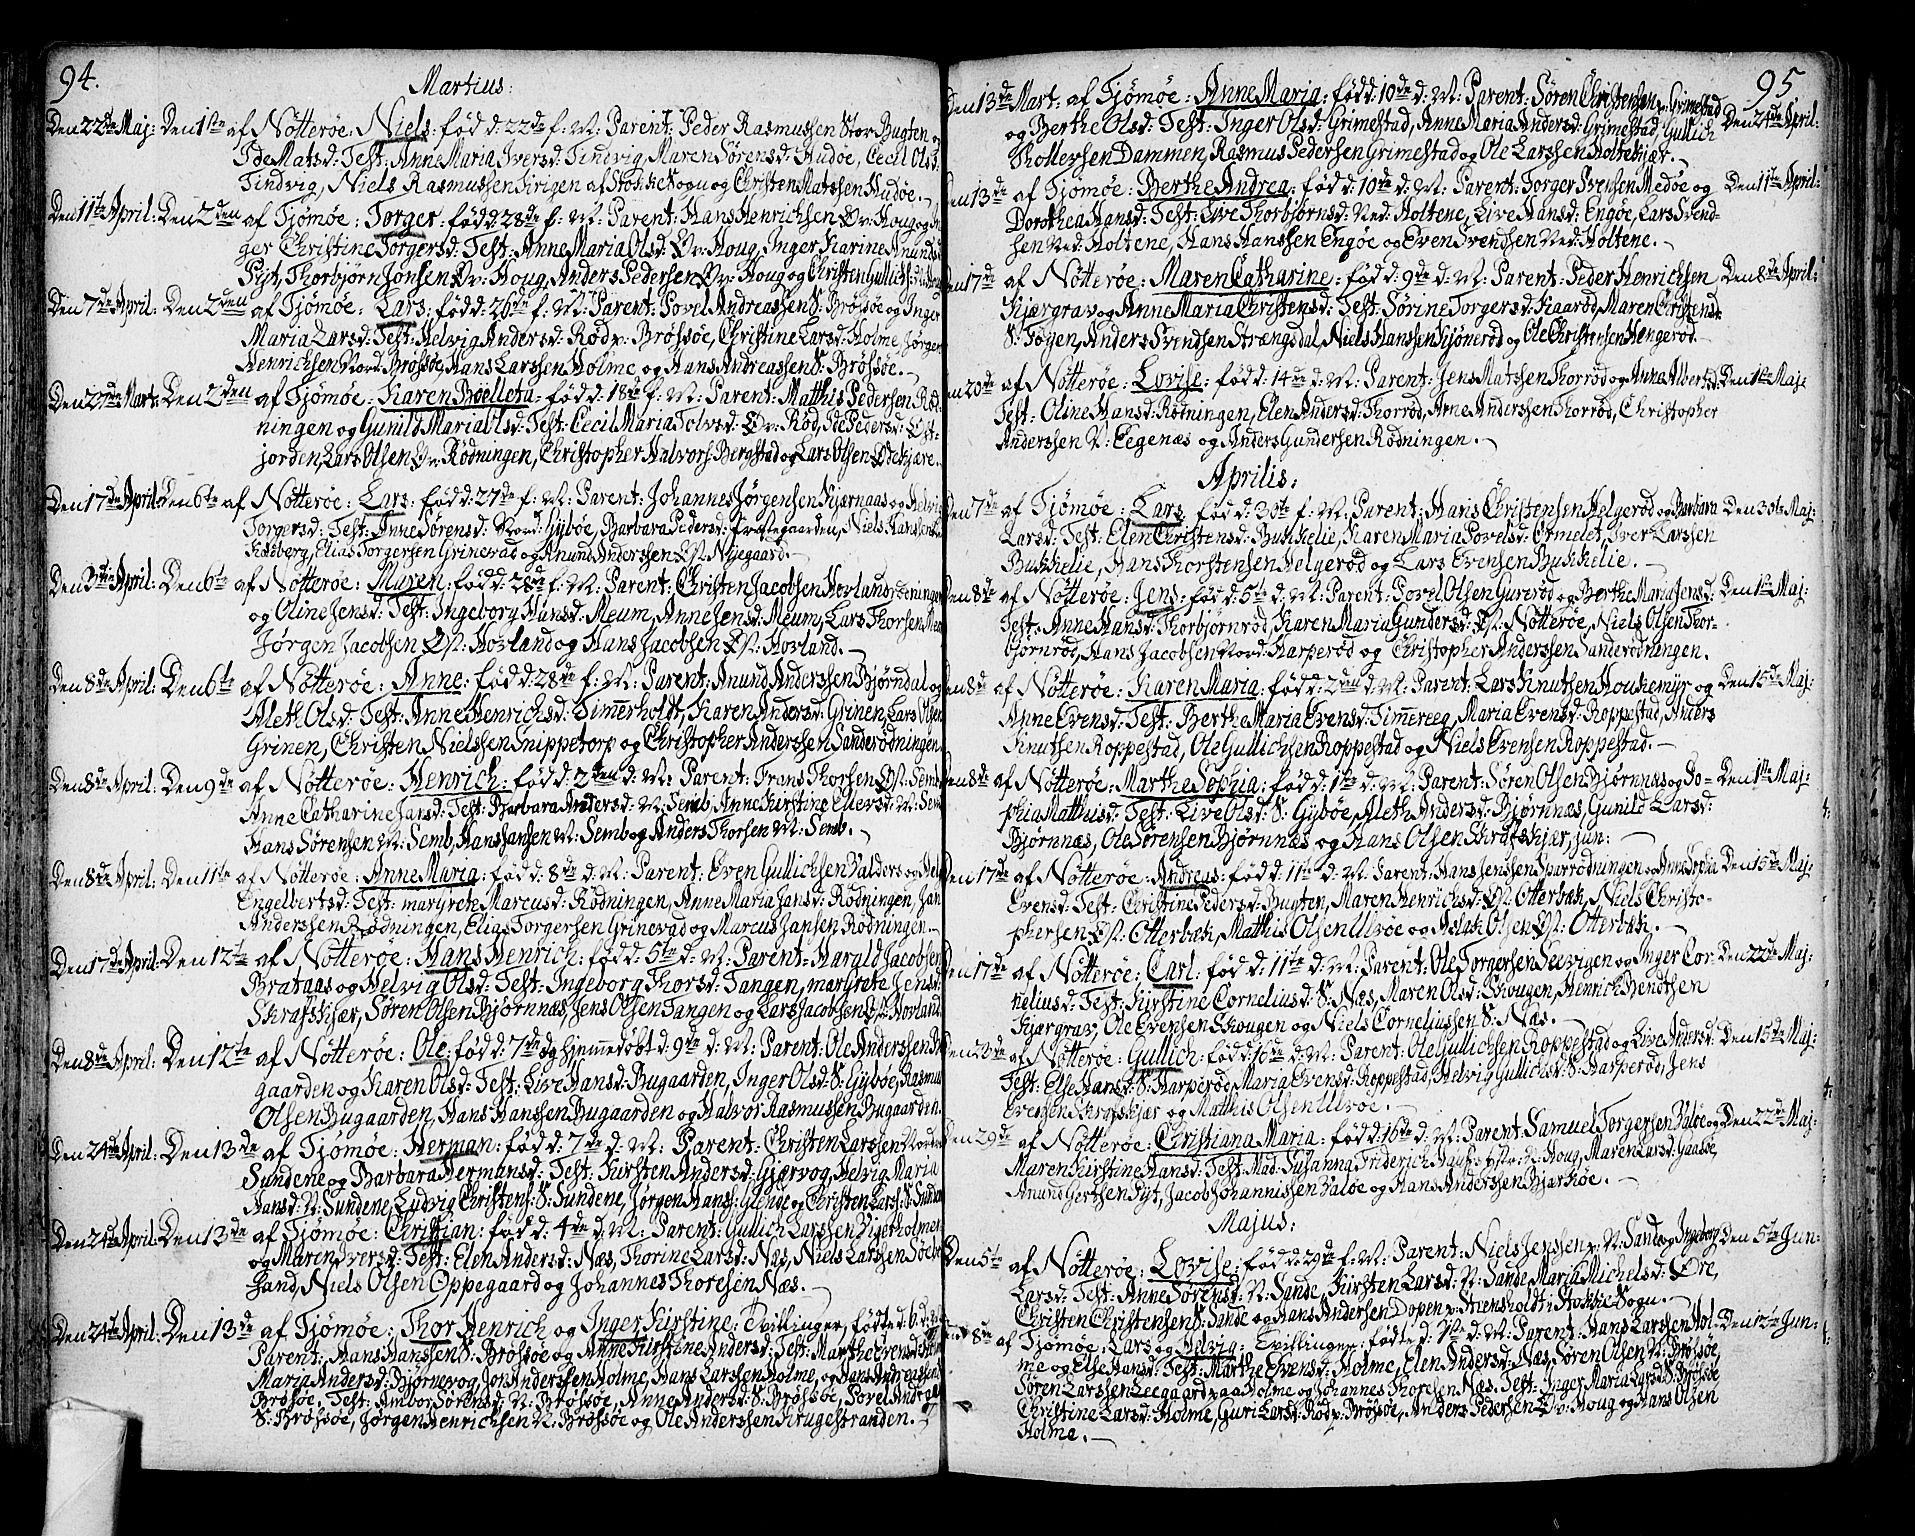 94.
Martius:
Den 22de Maj: Den 1ste af Nötteröe: Niels: föd d: 22de f: M: Parent: Peder Rasmussen Stor Bugten og
Ide Matsd: Test: Anne Maria Iversd: Tindvig, Maren Sörensd: Hudöe, Cecil Olsd:
Tindvig, Niels Rasmussen Firigen af Stokke Sogn og Christen Matssen Hudöe.
Den 11te April: Den 2den af Tjömöe: Torger: född: 28de f: M: Parent: Hans Henrichsen Øv: Houg og In-
ger Christine Torgersd: Test: Anne Maria Olsd: Øv: Houg, Inger Karine Anundsd:
Pyt, Thorbjörn Jonsen Øv: Houg, Anders Pedersen Øv: Houg og Christen Gullichs:
Den 7de April: Den 2den af Tjömöe: Lars: född: 26de f: M: Parent: Povel Andreassen S: Bröfsöe og Inger
Maria Larsd: Test: Helvig Andersd: Röd v: Bröfsöe, Christine Larsd: Holme, Jörgen
Henrichsen Nord: Bröfsöe, Hans Larssen Holme og Hans Andreassen S: Bröfsöe.
Den 27de Mart: Den 2den af Tjömöe: Karen Boelleta: född: 18de f: M: Parent: Matthis Pedersen Röd-
ningen og Gunild Maria Olsd: Test: Cecil Maria Tolvsd: Øv: Röd, Ide Pedersd: Øst-
jorden, Lars Olsen Øv: Rödningen, Christopher Halvors: Bergstad og Lars Olsen Östekjære.
Den 17de April: Den 6te af Nötteröe: Lars: född: 27de f: M: Parent: Johannes Jörgensen Kjærnaas og Helvig
Torgersd: Test: Anne Sörensd: Nord: Gyböe, Barbara Pedersd: Præstegaarden, Niels Hansen
Kaaberg, Elias Torgersen Grinevad og Anund Anderssen Øst: Nyegaard.
Den 3die April: Den 6te af Nötteröe: Maren: född: 28de f: M: Parent: Christen Jacobsen Hovland
og Oline Jensd: Test: Ingeborg Hansd: Meum, Anne Jensd: Meum, Lars Thorsen Meum
Jörgen Jacobsen Øst: Hovland og Hans Jacobsen Øst: Hovland.
Den 8de April: Den 6te af Nötteröe: Anne: född: 28de f: M: Parent: Anund Anderssen Bjørndal og
Aleth Olsd: Test: Anne Henrichsd: Timmerholdt, Karen Andersd: Grinen, Lars Olsen
Grinen, Christen Nielssen Snippetorp og Christopher Anderssen Sanderödningen.
Den 8de April: Den 9de af Nötteröe: Henrich: född: 2den d: M: Parent: Frans Thorsen Øst: Semb
Anne Catharine Jansd: Test: Barbara Andersd: M: Semb, Anne Kirstine Eliersd: M: Semb
Hans Sörensen M: Semb, Hans Jansen M: Semb og Anders Thorsen M: Semb.
Den 8de April: Den 11te af Nötteröe: Anne Maria: född: 8de d: M: Parent: Even Gullichsen Valders og Helv:
Engelbertsd: Test: margrete Marcusd: Rödningen, Anne Maria Jansd: Rödningen, Jan
Anderssen Rödningen, Elias Torgersen Grinevad og Marcus Jansen Rödningen.
Den 17de April: Den 12te af Nötteröe: Hans Henrich: född: 5te d: M: Parent: Harald Jacobsen
Brataas og Helvig Olsd: Test: Ingeborg Thorsd: Tangen, margrete Jensd:
Skrafskjær, Sören Olsen Bjørnnæs, Jens Olsen Tangen og Lars Jacobsen Øst: Hovland
Den 8de April: Den 12te af Nötteröe: Ole: född: 7de og hjemmedöbt d: 9de d: M: Parent: Ole Anderssen Bu-
gaarden og Karen Olsd: Test: Live Hansd: Bugaarden, Inger Olsd: S: Gyböe, Rasmus
Olsen Bugaarden, Hans Hanssen Bugaarden og Halvor Rasmussen Bugaarden.
Den 24de April: Den 13de af Tjömöe: Herman: född: 7de d: M: Parent: Christen Larssen Norden
Sundene og Barbara Hermansd: Test: Kirsten Andersd: Gjervog, Helvig Maria
Hansd: N: Sundene, Ludvig Christens: S: Sundene, Jörgen Hans: Sunde og Christen Lars: S: Sundene
Den 24de April: Den 13de af Tjömöe: Christian: född: 4de d: M: Parent: Gullich Larssen Vigerholmen
og Maren Iversd: Test: Elen Andersd: Næs, Thorine Larsd: Næs, Niels Larssen Söebo
Sand, Niels Olsen Oppegaard og Johannes Thoresen Næs.
Den 24de April: Den 13de af Tjömöe: Thor Henrich og Inger Kirstine: Tvillinger, fødte d: 6 d: M:
Parent: Hans Hanssen S: Bröfsöe og Anne Kirstine Andersd: Test: Marthe Evensd: Holme
Maria Andersd: Bjørnevog, Jon Anderssen Holme, Hans Larssen Holme, og Hans Andreassen S:
Bröfsöe, Test: Ambor Sörensd: N: Bröfsöe, Anne Andersd: S: Bröfsöe, Povel Andreas:
S: Bröfsöe, Jörgen Henrichsen N: Bröfsöe og Ole Anderssen Krugestranden.
95
Den 13de Mart: af Tjömöe: Anne Maria: född: 10de d: M: Parent: Sören Christensen v: Grimestad
og Berthe Olsd: Test: Inger Olsd: Grimestad, Anne Maria Andersd: Grimestad, Gullich Den 24de April:
Thollersen Dammen, Rasmus Pedersen Grimestad og Ole Larssen Holtekjær.
Den 13de af Tjömöe: Berthe Andrea: född: 10de d: M: Parent: Torger Svensen Medöe og Den 11te April:
Dorothea Hansd: Test: Live Thorbjörnsd: Ned: Holtene, Live Hansd: Engöe, Lars Svend-
sen Ned: Holtene, Hans Hanssen Engöe og Even Svendsen Ned: Holtene.
Den 17de af Nötteröe: Maren Catharine: född: 9de d: M: Parent: Peder Henrichsen Den 8de April:
Kjærgrav og Anne Maria Christensd: Test: Sörine Torgersd: Kaaröd, Maren Christensd:
S: Föyen, Anders Svendsen Strængsdal, Niels Hanssen Kjøneröd og Ole Christensen Hengeröd.
Den 20de af Nötteröe: Lovise: född: 14de d: M: Parent: Jens Matssen Thorröd og Anne Albertsd: Den 1ste Maj:
Test: Oline Hansd: Rödningen, Elen Andersd: Thorröd, Arne Anderssen Thorröd, Christopher
Anderssen N: Eegenæs og Anders Gundersen Rödningen.
Aprilis:
Den 7de af Tjömöe: Lars: född: 30te f: M: Parent: Hans Christensen Helgeröd og Barbara Den 30te Maj:
Larsd: Test: Elen Christensd: Bukkelie, Karen Maria Povelsd: Ormelet, Iver Larssen
Bukkelie, Hans Thorstensen Helgeröd og Lars Evensen Bukkelie.
Den 8de af Nötteröe: Jens: född: 5te d: M: Parent: Povel Olsen Gureröd og Berthe Maria Jensd: Den 1ste Maj:
Test: Anne Hansd: Thorbjörnröd, Karen Maria Gundersd: Øst: Nötteröe, Niels Olsen Thor-
björnröd, Hans Jacobsen Nord: Harperöd og Christopher Anderssen Sanderödningen.
Den 8de af Nötteröe: Karen Maria: född: 2den d: M: Parent: Lars Knutsen Houkemÿr og Den 15de Maj:
Anne Evensd: Test: Berthe Maria Evensd: Timmereeg, Maria Evensd: Roppestad, Anders
Knutsen Roppestad, Ole Gullichsen Roppestad og Niels Evensen Roppestad.
Den 8de af Nötteröe: Marthe Sophia: född: 1ste d: M: Parent: Sören Olsen Bjørnnæs og So- Den 1ste Maj:
phia Matthisd: Test: Live Olsd: S: Gyböe, Aleth Andersd: Bjørnnæs, Gunild Larsd:
Bjørnnæs, Ole Sörensen Bjørnnæs og Hans Olsen Skrafskjær, jun:
Den 17de af Nötteröe: Andreas: född: 11te d: M: Parent: Hans Jenssen Sparrödningen og Anne Sophia Den 15de Maj:
Evensd: Test: Christine Pedersd: Bugten, Maren Henrichsd: Øst: Otterbæk, Niels Christo-
phersen Øst: Otterbæk, Mathis Olsen Ulvöe og Aslak Olsen Øst: Otterbæk.
Den 17de af Nötteröe: Carl: född: 11te d: M: Parent: Ole Torgersen Seevigen og Inger Cor- Den 22de Maj:
neliusd: Test: Kirstine Corneliusd: S: Næs, Maren Olsd: Skougen, Henrich Bendtsen
Kjærgrav, Ole Evensen Skougen og Niels Corneliussen S: Næs.
Den 23de af Nötteröe: Gullich: född: 16de d: M: Parent: Ole Gullichsen Roppestad og Live Andersd: Den 15de Maj:
Test: Else Hansd: S: Harperöd, Maria Evensd: Roppestad, Helvig Gullichsd: S: Harperöd, Jens
Evensen Skrafskjær og Mathis Olsen Ulvöe.
Den 29de af Nötteröe: Christiana Maria: född: 16de d: M: Parent: Samuel Torgersen Valöe og Den 22de Maj:
Maren Kirstine Hansd: Test: Mad: Susanna Friderich v: Houg, Maren Larsd: Gaasöe,
Anund Gertsen Pyt, Jacob Johannissen Valöe og Hans Anderssen Bjærköe.
Majus:
Den 5te af Nötteröe: Lovise: född: 29de f: M: Parent: Niels Jenssen v: N: Sande og Ingeborg Den 5te Jun:
Larsd: Test: Anne Sörensd: N: Sande, Kirsten Larsd: N: Sande, Maria Michelsd: Øre,
Christen Christensen S: Sande og Hans Andersen Dopen v: Steensholdt i Stokke Sogn.
Den 8de af Tjömöe: Lars og Helvig: Tvillinger: fødte d: 7de d: M: Parent: Hans Larssen Hol- Den 12te Jun:
me og Else Hansd: Test: Marthe Evensd: Holme, Elen Andersd: Næs, Sören Olsen N: Bröfsöe,
Sören Larssen Leegaard paa Holme og Johannes Thoresen Næs. Test: Inger Maria Larsd: S: Bröfsöe
Christine Larsd: Holme, Guri Larsd: Röd v: Bröfsöe, Anders Pedersen Øv: Houg og Hans Olsen
Holme.